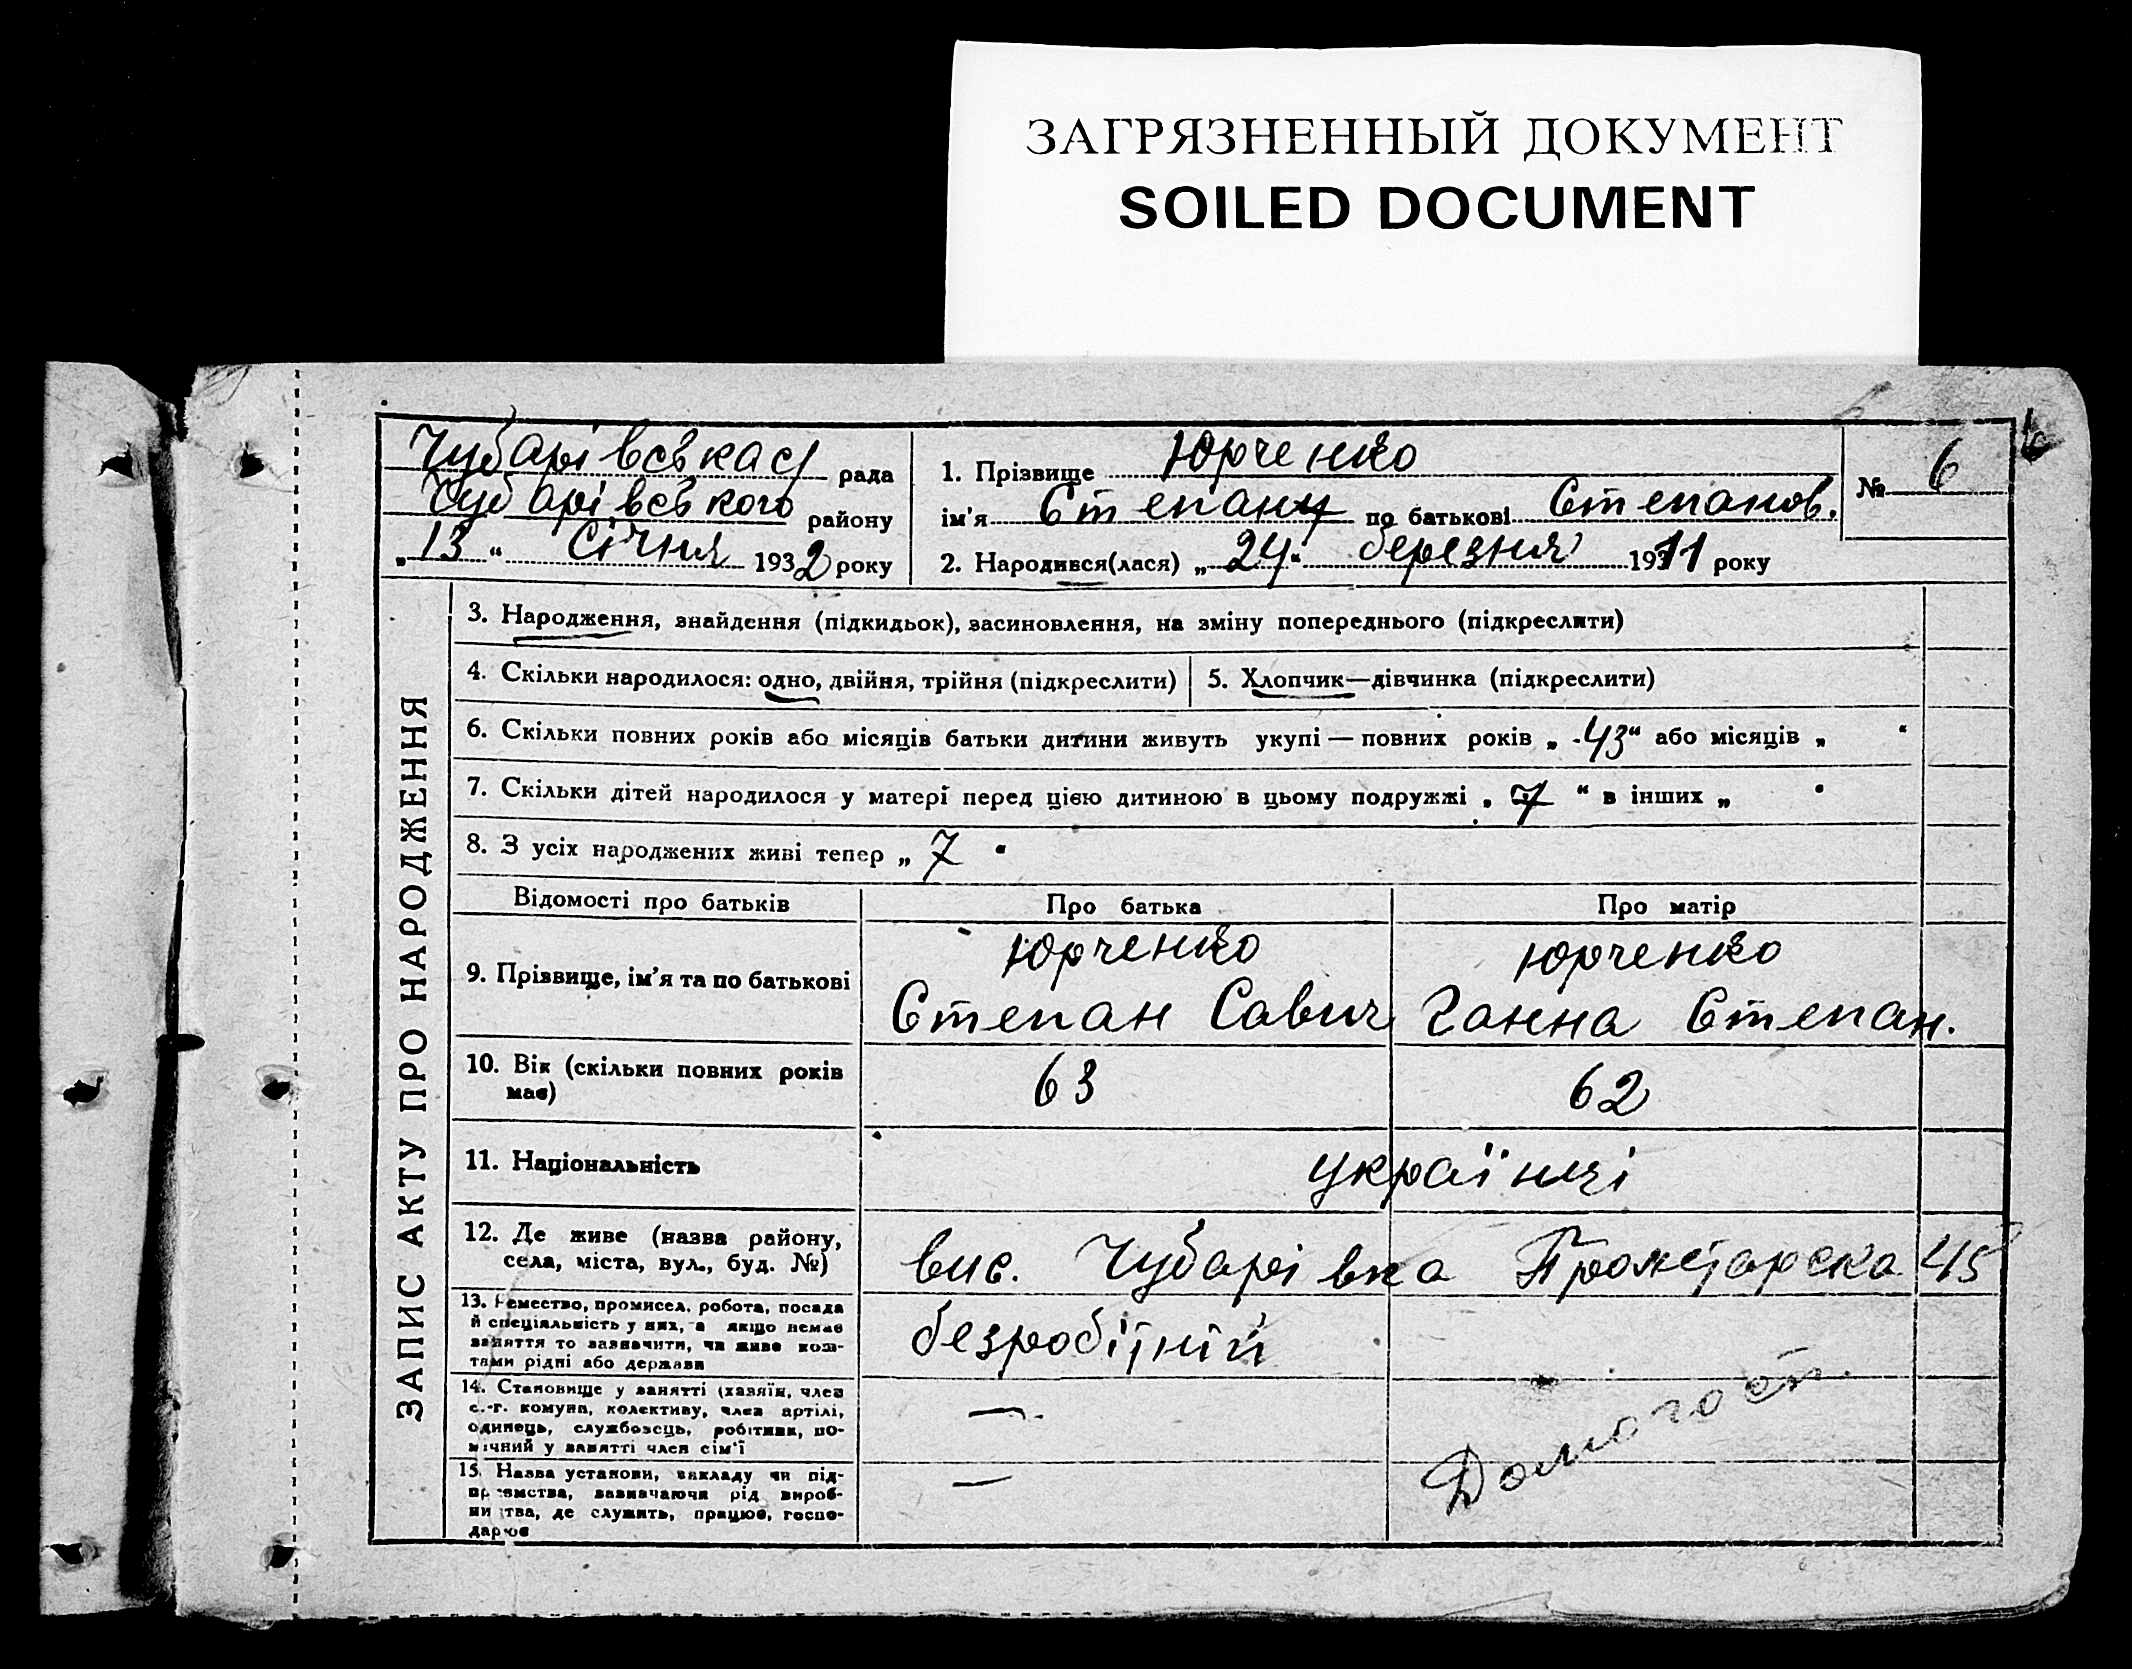 ЗАГРЯЗНЕННЫЙ ДОКУМЕНТ
SOILED DOCUMENT
Чубарівська рада
Чубарівського району
„13“ Січня 1932 року
1. Прізвище Юрченко
ім'я Степан по батькові Степанов.
№ 6
2. Народився(лася) „24“ березня 1911 року
ЗАПИС АКТУ ПРО НАРОДЖЕННЯ
3. Народження, знайдення (підкидьок), засиновлення, на зміну попереднього (підкреслити)
4. Скільки народилося: одно, двійня, трійня (підкреслити)
5. Хлопчик—дівчинка (підкреслити)
6. Скільки повних років або місяців батьки дитини живуть укупі — повних років „43“ або місяців „ “
7. Скільки дітей народилося у матері перед цією дитиною в цьому подружжі „7“ в інших „ “
8. З усіх народжених живі тепер „7“
Відомості про батьків Про батька Про матір
9. Прізвище, ім'я та по батькові
Юрченко
Степан Савич
Юрченко
Ганна Степан.
10. Вік (скільки повних років має)
63
62
11. Національність
українці
12. Де живе (назва району,
села, міста, вул., буд. №)
вис. Чубарівка Пролетарська 45
13. Ремество, промисел, робота, посада
й спеціяльність у них, а якщо немає
заняття то зазначити, чи живе кош-
тами рідні або держави
безробітній
14. Становище у занятті (хазяїн, член
с.-г. комуни, колективу, член артілі,
одинець, службовець, робітник, по-
мічний у занятті член сім'ї
—
15. Назва установи, закладу чи під-
приємства, зазначаючи рід вироб-
ництва, де служить, працює, госпо-
дарює
—
Домогосп.